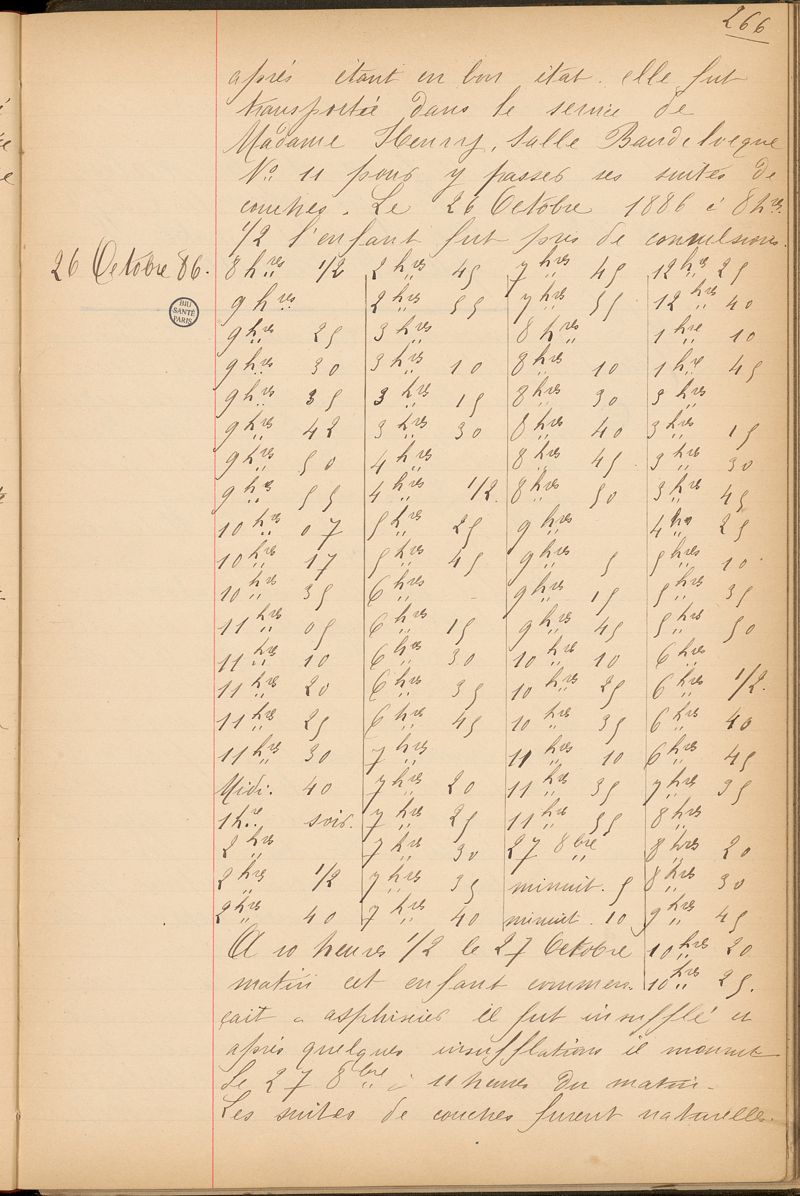 266
après étant en bon état. elle fut
transportée dans le service de
Madame Henry, Salle Baudelocque
No 11 pour y passer ses suites de
couches. Le 26 Octobre 1886 à 8 hres
1/2 l'enfant fut pris de convulsions.
26 Octobre 86.
8 hres 1/2 2 hres 45 7 hres 45 12 hres 25
BIU SANTÉ PARIS
9 hres 2 hres 55 7 hres 55 12 hres 40
9 hres 25 3 hres 8 hres 1 hre 10
9 hres 30 3 hres 10 8 hres 10 1 hre 45
9 hres 35 3 hres 15 8 hres 30 3 hres
9 hres 42 3 hres 30 8 hres 40 3 hres 15
9 hres 50 4 hres 8 hres 45 3 hres 30
9 hres 55 4 hres 1/2. 8 hres 50 3 hres 45
10 hres 07 5 hres 25 9 hres 4 hres 25
10 hres 17 5 hres 45 9 hres 5 5 hres 10
10 hres 35 6 hres 9 hres 15 5 hres 35
11 hres 05 6 hres 15 9 hres 45 5 hres 50
11 hres 10 6 hres 30 10 hres 10 6 hres
11 hres 20 6 hres 35 10 hres 25 6 hres 1/2.
11 hres 25 6 hres 45 10 hres 35 6 hres 40
11 hres 30 7 hres 11 hres 10 6 hres 45
Midi. 40 7 hres 20 11 hres 35 7 hres 35
1 hre soir. 7 hres 25 11 hres 55 8 hres
2 hres 7 hres 30 27 8bre 8 hres 20
2 hres 1/2 7 hres 35 minuit. 5 8 hres 30
2 hres 40 7 hres 40 minuit. 10 9 hres 45
A 10 heures 1/2 le 27 Octobre 10 hres 20
matin cet enfant commen- 10 hres 25.
çait a asphixier il fut insufflé et
après quelques insufflations il mourut
le 27 8bre à 11 heures du matin.
Les suites de couches furent naturelles.